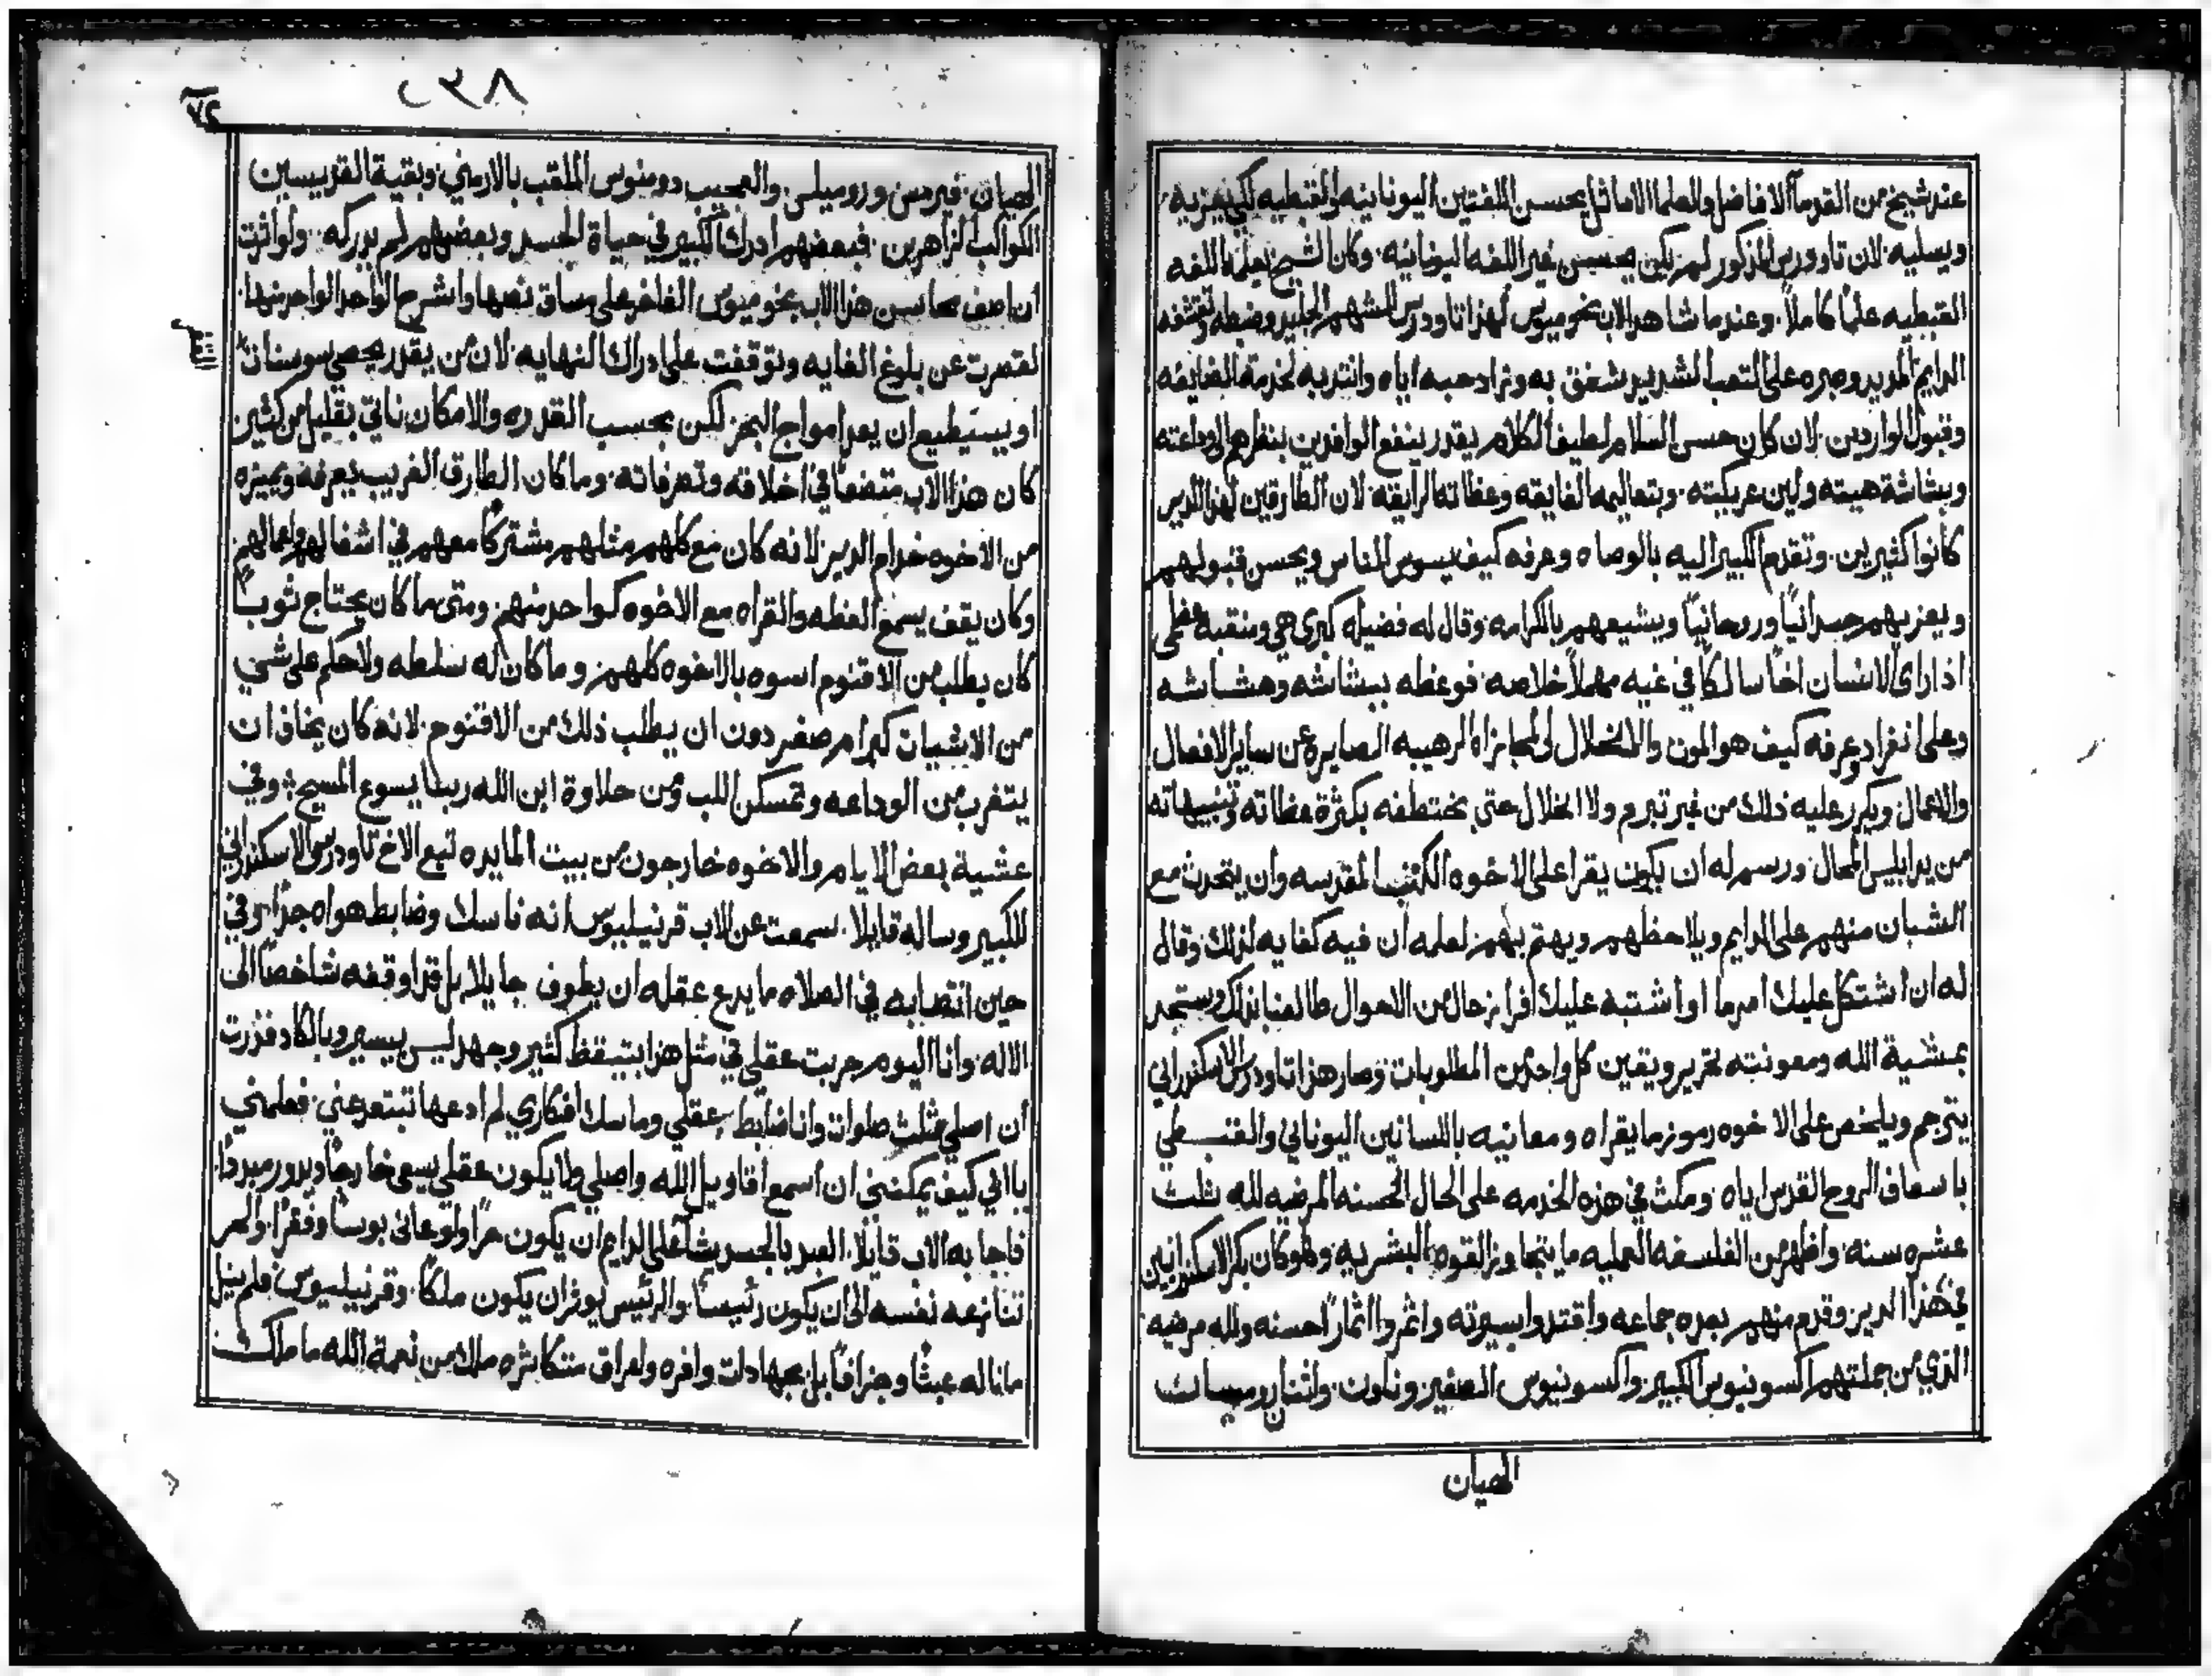 عند شيخ من القدما الافاضل والعلما الاماثل يحسن اللغتين اليونانيه والقبطيه لكي يعزيه
ويسليه لان تاودورس المذكور لم يكن يحسن غير اللغه اليونانيه وكان الشيخ يعلمه اللغه
القبطيه علمًا كاملاً وعندما شاهد الاب بخوميوس لهذا تاودرس الشهم الجليد وضبطه وتقشفه
الدايم المديد وصبره على التعب الشديد شغف به وتزاد حبه اياه وانتدبه لخدمة المضايفه
وقبول الواردين لان كان حسن السلام لطيف الكلام يقدر ينفع الوافدين بنظرهم الي وداعته
وببشاشة هيئته ولين عريكته وبتعاليمه الفايقه وعظاته الرايقه لان الطارقين لهذا الدير
كانوا كثيرين وتقدم الكبير اليه بالوصاه وعرفه كيف يسوس الناس ويحسن قبولهم
ويعزيهم جسدانيًا وروحانيًا ويشيعهم بالكرامه وقال له فضيله كبرى هي ومنقبه عظمى
اذا راى الانسان اخًا سالكًا في غيه مهملاً خلاصه فوعظه ببشاشه وهشاشه
وعلى انفراد وعرفه كيف هو الموت والانحلال الى المجازاه الرهيبه الصايره عن ساير الافعال
والاعمال ويكرر عليه ذلك من غير تبرم ولا اخلال حتى يختطفه بكثرة عظاته وتنبيهاته
من يد ابليس المحال ورسم له ان يكون يقرا على الاخوه الكتب المقدسه وان يتحدث مع
الشبان منهم على الدايم ويلاحظهم ويهتم بهم لعلمه ان فيه كفايه لذلك وقال
له ان اشتكل عليك امر ما او اشتبه عليك افراز حال من الاحوال طالعنا بذلك وستجد
بمشية الله ومعونته تحرير ويقين كل واحد من المطلوبات وصار هذا تاودرس الاسكندراني
يترجم ويلخص على الاخوه رموز ما يقراه ومعانيه باللسانين اليوناني والقبطي
باسعاف الروح القدس اياه ومكث في هذه الخدمه على الحال الحسنه المرضيه لله ثلث
عشره سنه واظهر من الفلسفه العمليه ما يتجاوز القوه البشريه وهو كان بكر الاسكندرانيين
في هذا الدير وقدم منهم بعده جماعه واقتدوا بسيرته واثمروا اثمارًا حسنه ولله مرضيه
الذي من جملتهم اكسونيوس الكبير واكسونيوس الصغير وناون واثنان روميان
المصيان
٢٣٨
٧٢
المصيان فيرمس وروميلس والعجيب دومنوس الملقب بالارمني وبقية القديسين
الكواكب الزاهرين فبعضهم ادرك الكبير في حياة الجسد وبعضهم لم يدركه ولو اثرت
ان اصف محاسن هذا الاب بخوميوس الفاخر على مساق نصها واشرح الواحد الواحد منها
لقصرت عن بلوغ الغايه وتوقفت على ادراك النهايه لان من يقدر يحصي سوسنات
او يستطيع ان يعد امواج البحر لكن بحسب القدره والامكان ناتي بقليل من كثير
كان هذا الاب متضعًا في اخلاقه وتصرفاته وما كان الطارق الغريب يعرفه ويميزه
من الاخوه خدام الدير لانه كان مع كلهم مثلهم مشتركًا معهم في اشغالهم واعمالهم
وكان يقف يسمع العظه والقراه مع الاخوه كواحد منهم ومتى ما كان يحتاج ثوبًا
كان يطلب من الاقنوم اسوه بالاخوه كلهم وما كان له سلطه ولا حكم على شي
من الاشيات كبر ام صغر دون ان يطلب ذلك من الاقنوم لانه كان يخاف ان
يتغرب من الوداعه وتمسكن اللب ومن حلاوة ابن الله ربنا يسوع المسيح وفي
عشية بعض الايام والاخوه خارجون من بيت المايده تبع الاخ تاودرس الاسكندراني
للكبير وساله قايلا سمعت عن الاب قرنيليوس انه ناسك وضابط هواه جدًا وفي
حين انتصابه في الصلاه ما يدع عقله ان يطوف جايلا بل قد اوقفه شاخصًا الى
الاله وانا اليوم جربت عقلي في مثل هذا بتيقظ كثير وجهد ليس بيسير وبالكاد قدرت
ان اصلي ثلث صلوات وانا ضابط عقلي وماسك افكاري لم ادعها تبتعد عني فعلمني
يا ابي كيف يمكنني ان اسمع اقاويل الله واصلي ولا يكون عقلي يسعى خارجًا ويدور مبردًا
فاجابه الاب قايلا العبد بالجسد يشا على الدايم ان يكون حرًا ولو عانى بوسًا وفقرًا والحر
تنازعه نفسه الى ان يكون رئيسًا والرئيس يوثر ان يكون ملكًا وقرنيليوس فلم ينل
ما ناله عبثًا وجزافًا بل بجهادات وافره واعراق متكاثره ملك من نعمة الله ما ملك